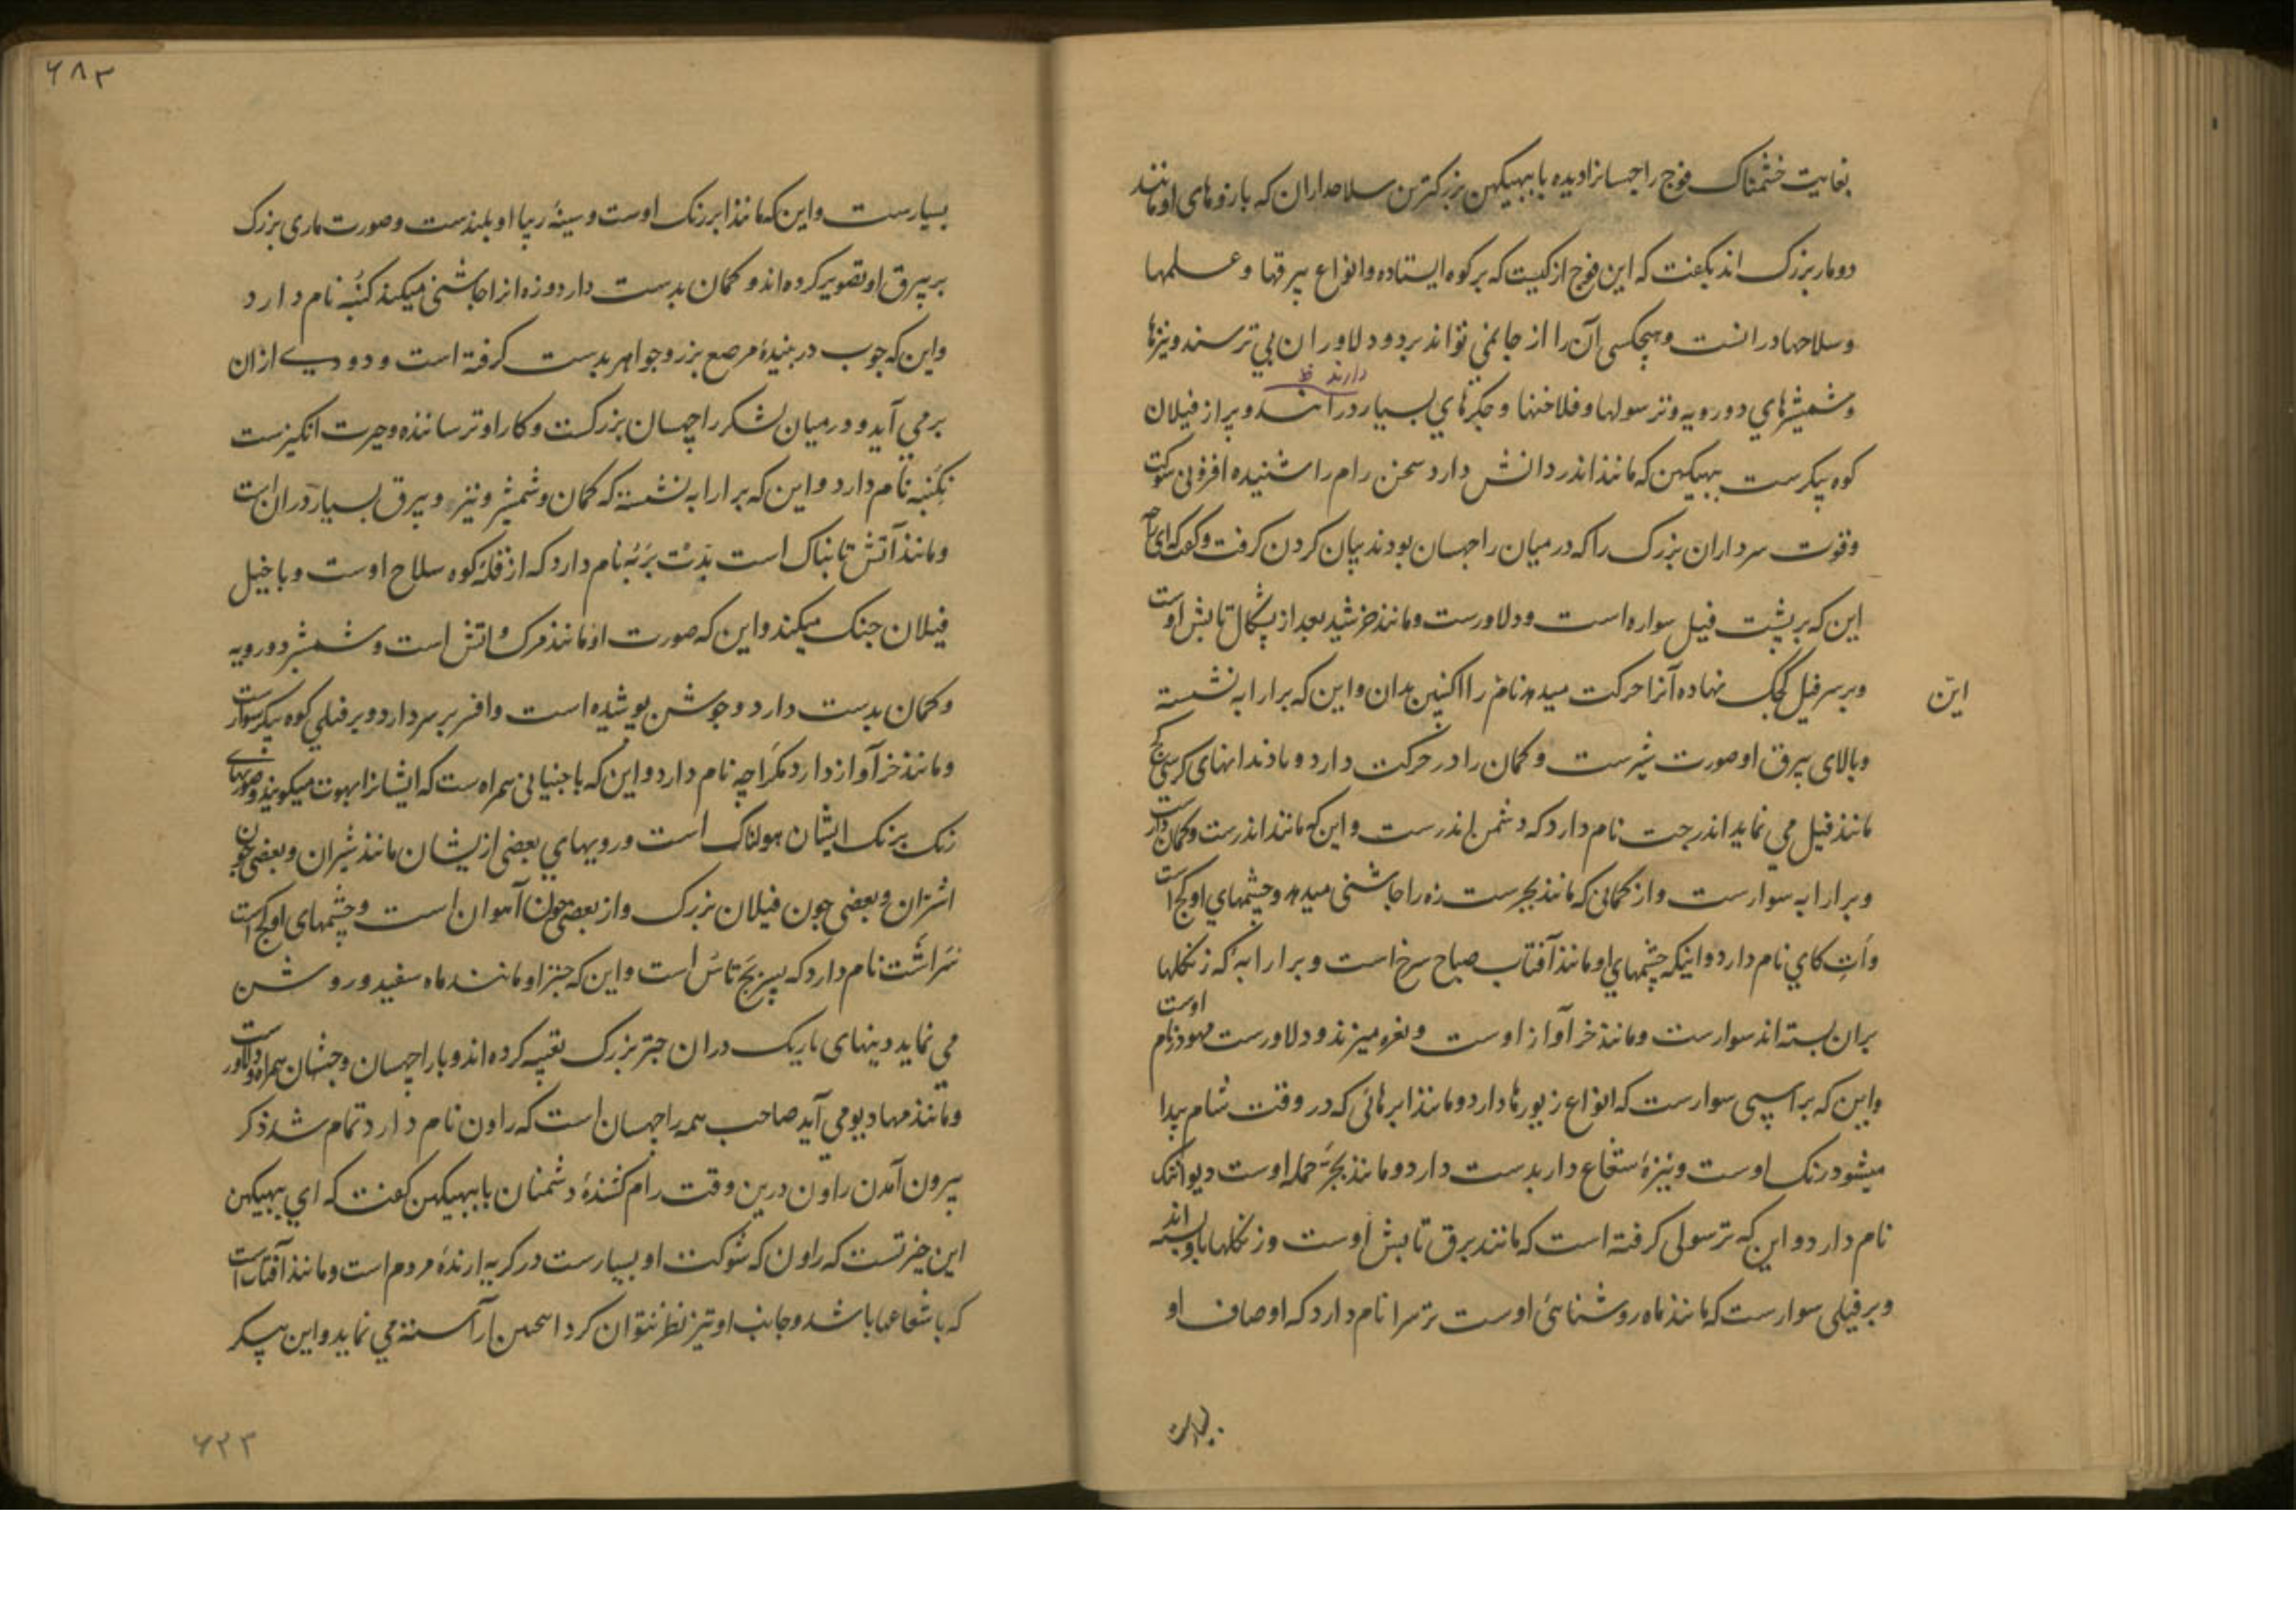 بغایت خشمناک فوج راچسانرا دیده با ببهیکهن بزرکترین سلاحداران که بازوهای او مانند
دو مار بزرک اند بکفت که این فوج از کیست که بر کوه ایستاده و انواع بیرقها و علمها
و سلاحها درانست و هیچکسی آن را از جا نمی تواند برد و دلاوران بی ترسند و نیزها
دارند خ
و شمشیرهای دورویه و ترسولها و فلاخنها و چکرهای بسیار درانند و پر از فیلان
کوه پیکرست ببهیکهن که مانند اندر دانش دارد سخن رام را شنیده افزونی شوکت
و قوت سرداران بزرک را که در میان راچهسان بودند بیان کردن کرفت و کفت که ای راجه
این که بر پشت فیل سواره است و دلاورست و مانند خرشید بعد از بشکال تابش اوست
و بر سر فیل کجک نهاده آنرا حرکت میدهد نام را اکنپن بدان و این که بر ارابه نشسته
این
و بالای بیرق او صورت شیرست و کمان را در حرکت دارد و با دندانهای کرسی کج
مانند فیل می نماید اندرجت نام دارد که دشمن اندرست و این که مانند اندرست و کمان دارست
و بر ارابه سوارست و از کمانی که مانند بجرست زه را چاشنی میدهد و چشمهای او کج است
و اَتِ کای نام دارد و اینکه چشمهای او مانند آفتاب صباح سرخ است و بر ارابه که زنکلها
بران بسته اند سوارست و مانند خر آواز اوست و نعره میزند و دلاورست مهودر نام اوست
و این که بر اسپی سوارست که انواع زیورها دارد و مانند ابرهائی که در وقت شام پیدا
میشود رنک اوست و نیزهٔ شعاع دار بدست دارد و مانند بجر حمله اوست دیوانتک
نام دارد و این که ترسولی کرفته است که مانند برق تابش اوست و زنکلها باو بسته اند
و بر فیلی سوارست که مانند ماه روشنائی اوست ترسرا نام دارد که اوصاف او
بسیارست
۶۸۳
بسیارست و این که مانند ابر رنک اوست و سینهٔ زیبا او بلندست و صورت ماری بزرک
بر بیرق او تصویر کرده اند و کمان بدست دارد و زه انرا چاشنی میکند کُنبه نام دارد
و این که چوب دربندهٔ مرصع بزر و جواهر بدست کرفته است و دودی ازان
بر می آید و در میان لشکر راچهسان بزرکست و کار او ترساننده و حیرت انکیزست
نکُنبه نام دارد و این که بر ارابه نشسته که کمان و شمشیر و نیز و بیرق بسیار دران است
و مانند آتش تابناک است بذت برَبَه نام دارد که از قلهٔ کوه سلاح اوست و با خیل
فیلان جنک میکند و این که صورت او مانند مرک و اتش است و شمشیر دورویه
و کمان بدست دارد و جوشن پوشیده است و افسر بر سر دارد و بر فیلی کوه پیکر سوارست
و مانند خر آواز دارد مکراچه نام دارد و این که با جنیانی همراه ست که ایشانرا بهوت میکویند و صورتهای
رنک برنک ایشان هولناک است و رویهای بعضی ازیشان مانند شیران و بعضی چون
اشتران و بعضی چون فیلان بزرک و از بعضی چون آهوان است و چشمهای او کج است
نَراشَت نام دارد که پسر بَج تاس است و این که چتر او مانند ماه سفید و روشن
می نماید و پنهای باریک دران چتر بزرک تعبیه کرده اند و با راچهسان و جنیان همراه و دلاورست
و مانند مهادیو می آید صاحب همه راچهسان است که راون نام دارد تمام شد ذکر
بیرون آمدن راون درین وقت رام کشندهٔ دشمنان با ببهیکهن کفت که ای ببهیکهن
این حیرتست که راون که شوکت او بسیارست در کریه ارندهٔ مردم است و مانند آفتاب است
که با شعاعها باشد و جانب او تیز نظر نتوان کرد اسمن آراسته می نماید و این پیکر
۶۲۳